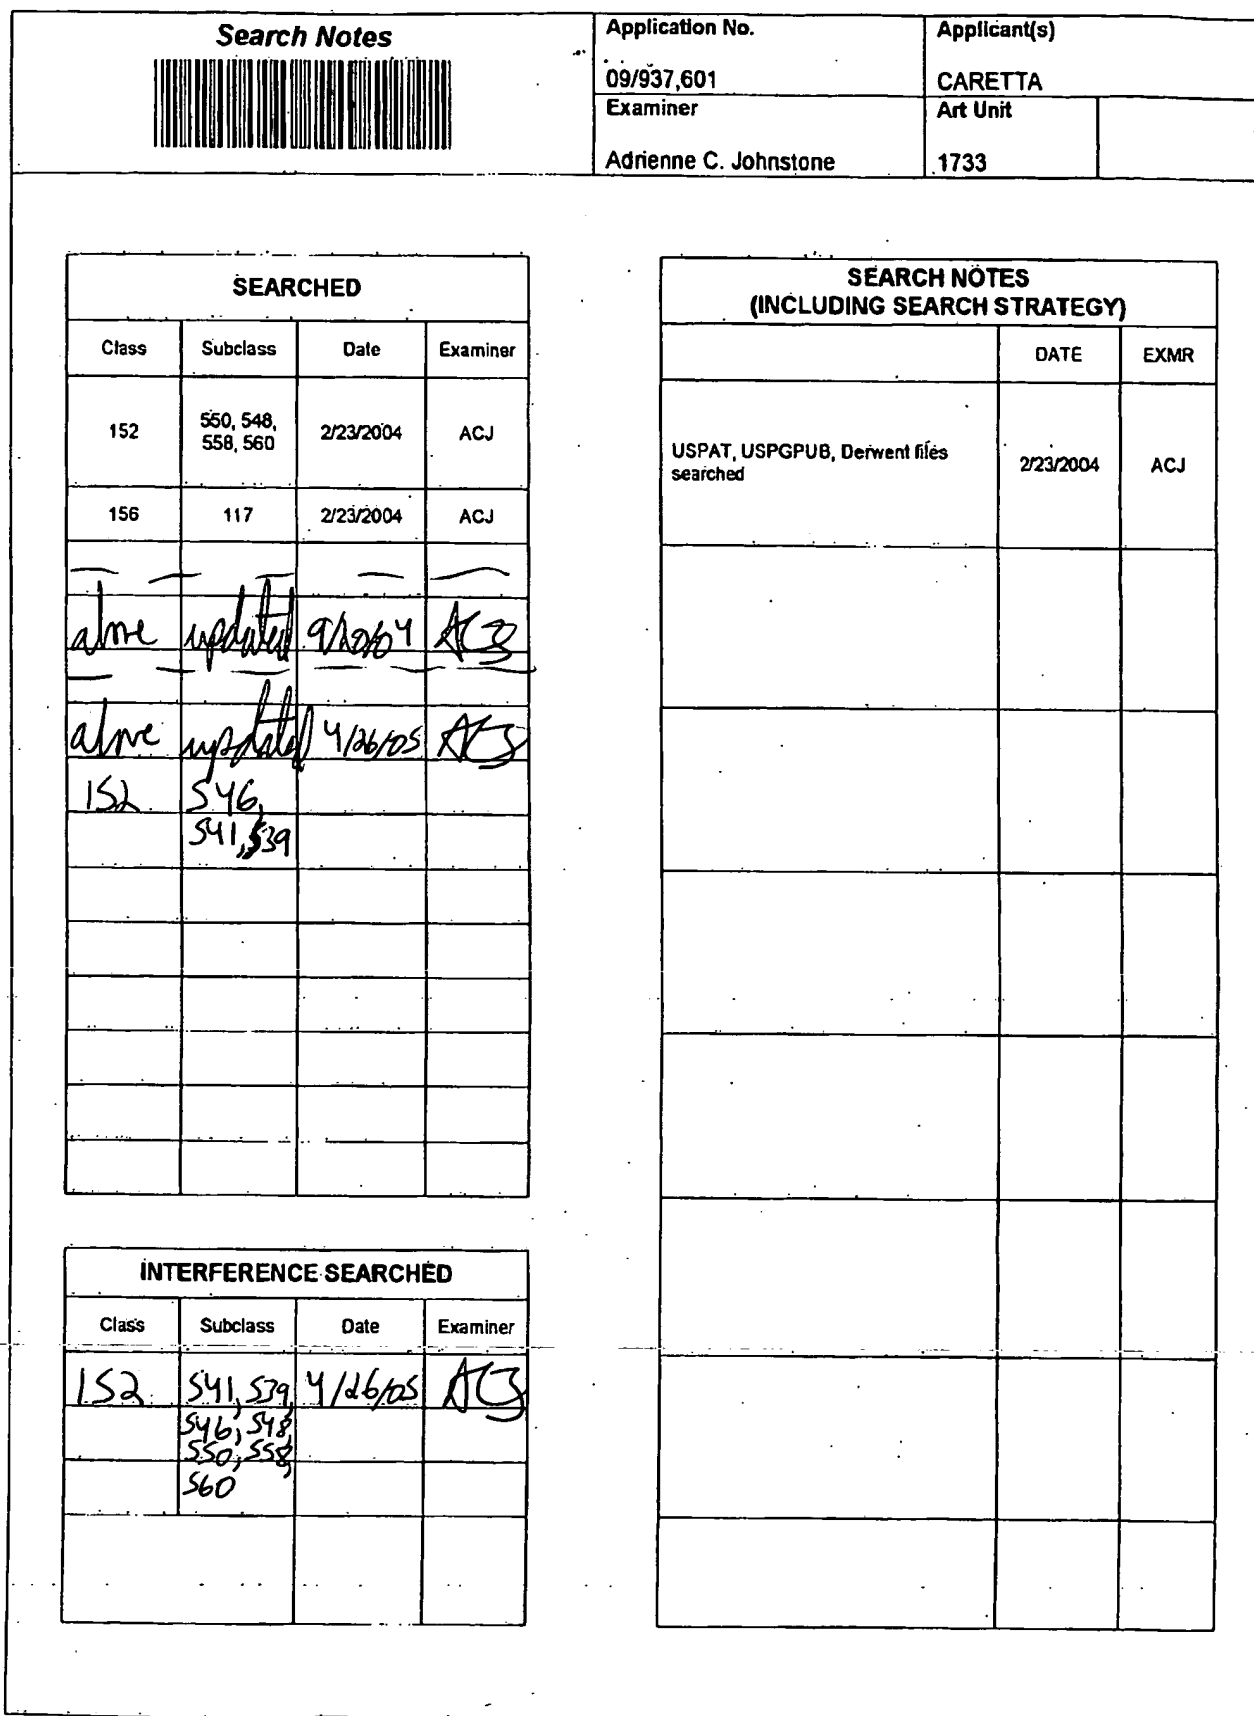 Search Notes
Application No.
Applicant(s)
09/937,601
CARETTA
Examiner
Art Unit
Adrienne C. Johnstone
1733
SEARCHED
Class Subclass Date Examiner
152 550, 548, 558, 560 2/23/2004 ACJ
156 117 2/23/2004 ACJ
above updated 9/20/04 ACJ
above updated 4/26/05 ACJ
152 546,
541, 539
INTERFERENCE SEARCHED
Class Subclass Date Examiner
152 541, 539, 4/26/05 ACJ
546, 548,
550, 558,
560
SEARCH NOTES
(INCLUDING SEARCH STRATEGY)
DATE EXMR
USPAT, USPGPUB, Derwent files
searched 2/23/2004 ACJ